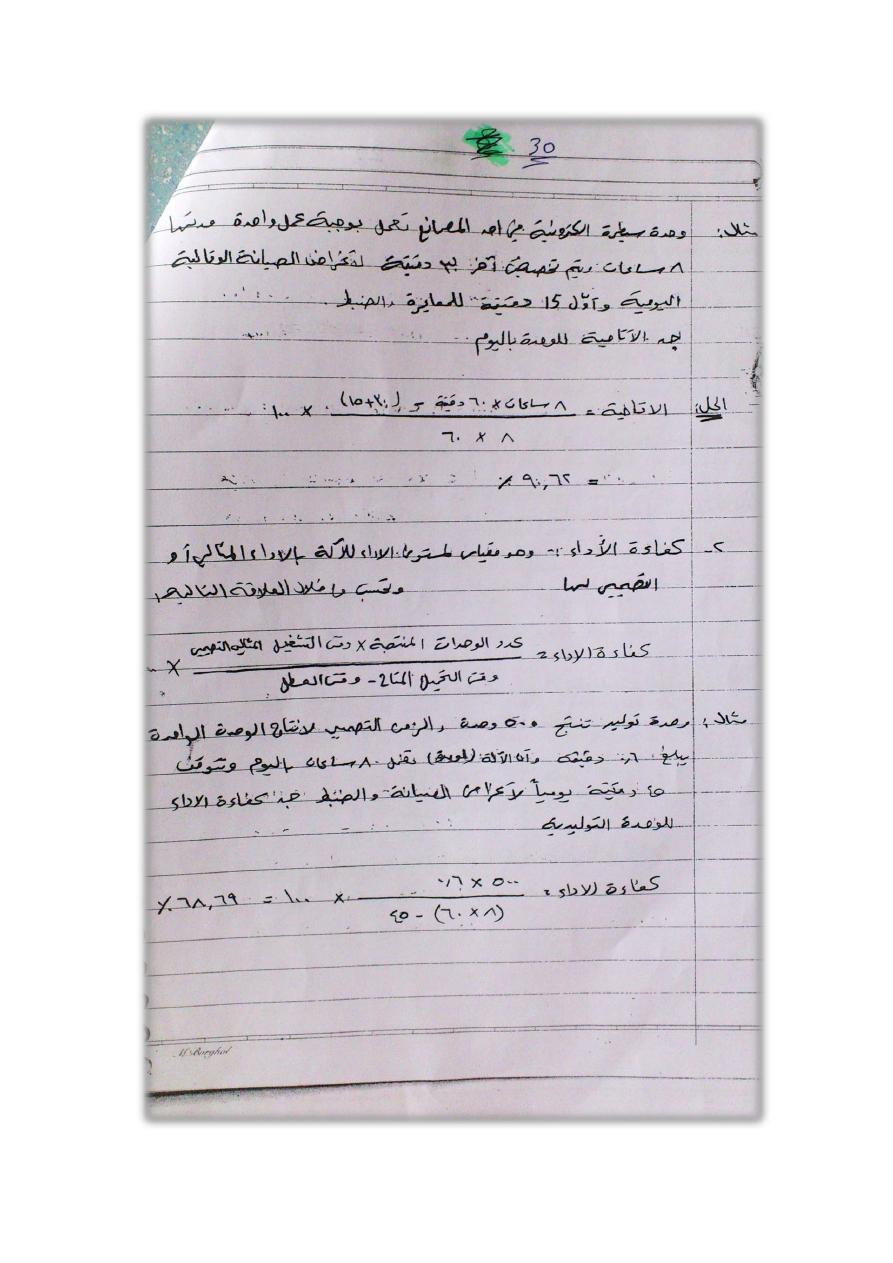 30
مثال: وحدة سيطرة الكترونية في احد المصانع تعمل بوجبة عمل واحدة مدتها
٨ ساعات ويتم تخصيص آخر ٣٠ دقيقة لأغراض الصيانة الوقائية
اليومية وأول 15 دقيقة للمعايرة والضبط
جد الأتاحية للوحدة باليوم
الحل: الاتاحية = ٨ ساعات × ٦٠ دقيقة - (٣٠+١٥) × ١٠٠
٨ × ٦٠
= ٩٠,٦٢ ٪
٢- كفاءة الأداء :- وهو مقياس لمستوى الاداء للآلة بالاداء المثالي أو
التصميمي لها وتحسب من خلال العلاقة التالية:
كفاءة الاداء = عدد الوحدات المنتجة × وقت التشغيل المثالي التصميمي ×
وقت التحميل المتاح - وقت العطل
مثال: وحدة توليد تنتج ٥٠٠ وحدة والزمن التصميمي لانتاج الوحدة الواحدة
يبلغ ٠,٦ دقيقة وأن الآلة (الوحدة) تعمل ٨ ساعات باليوم وتتوقف
٤٥ دقيقة يومياً لأغراض الصيانة والضبط جد كفاءة الاداء
للوحدة التوليدية
كفاءة الاداء = ٥٠٠ × ٠,٦ × ١٠٠ = ٦٨,٦٩ ٪
(٨ × ٦٠) - ٤٥
M.Borghol